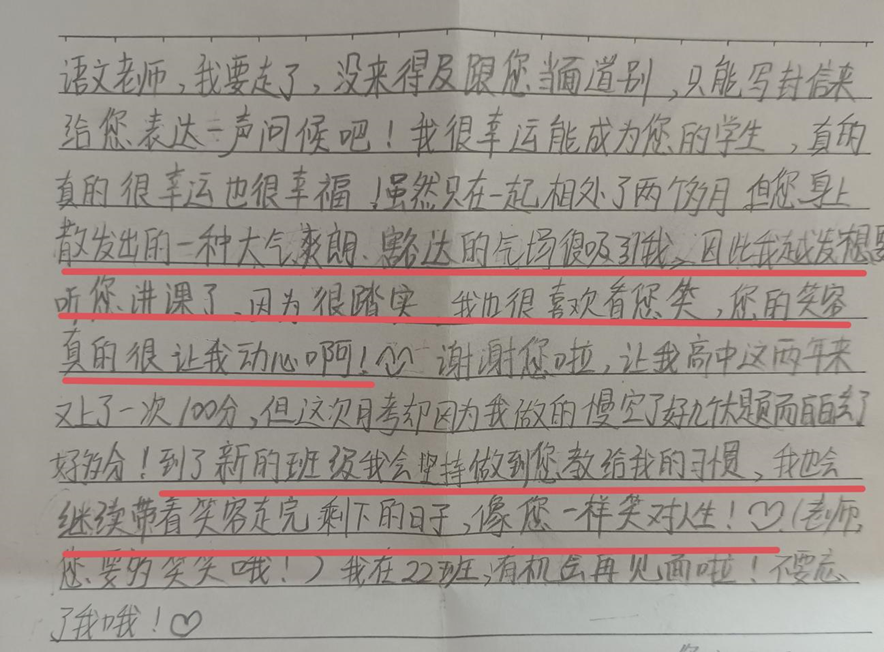 语文老师，我要走了，没来得及跟您当面道别，只能写封信来
给您表达一声问候吧！我很幸运能成为您的学生，真的
真的很幸运也很幸福！虽然只在一起相处了两个多月 但您身上
散发出的一种大气爽朗、豁达的气场很吸引我、因此我越发想要
听您讲课了、因为很踏实 我也很喜欢看您笑，您的笑容
真的很让我动心啊！♡ 谢谢您啦，让我高中这两年来
又上了一次100分，但这次月考却因为我做的慢空了好几个大题而白白丢了
好多分！到了新的班级我会坚持做到您教给我的习惯、我也会
继续带着笑容走完剩下的日子，像您一样笑对人生！♡（老师
您要多笑笑哦！）我在22班，有机会再见面啦！不要忘
了我哦！♡